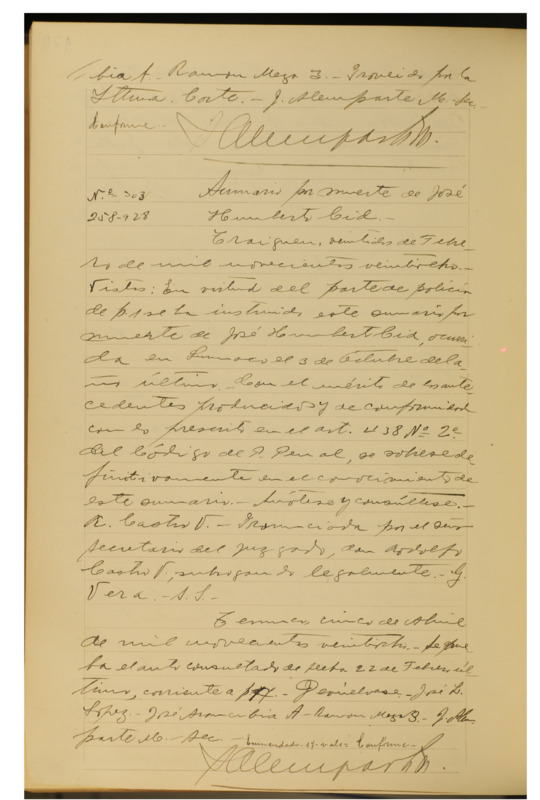 bia A - Ramon Meza B. - Proveido por la
Iltma. Corte. - J. Alemparte M. Sec. -
Conforme -
J Alemparte M.
N.º 303
258-928
Sumario por muerte de José
Humberto Cid. -
Traiguen, veintidos de Febre-
ro de mil novecientos veintiocho. -
Vistos: En virtud del parte de policia
de p 1 se ha instruido este sumario por
muerte de José Humberto Cid, ocurri
da en Lumaco el 3 de Octubre del a-
ño último. Con el mérito de los ante-
cedentes producidos y de conformidad
con lo prescrito en el art. 438 Nº 2º
del Código de P. Penal, se sobresee de
finitivamente en el conocimiento de
este sumario. - Anótese y consúltese. -
R. Castro V. - Pronunciada por el señor
secretario del juzgado, don Rodolfo
Castro V, subrogando legalmente. - G.
Vera. - S. S. -
Temuco, cinco de Abril
de mil novecientos veintiocho. - Se prue
ba el auto consultado de fecha 22 de Febrero úl
timo, corriente a p 17. - Devuélvase. - José L.
López. - José Arancibia A - Ramon Meza B. - J. Alem
parte M. - Sec - Enmendado - 17 - vale - Conforme -
J Alemparte M.